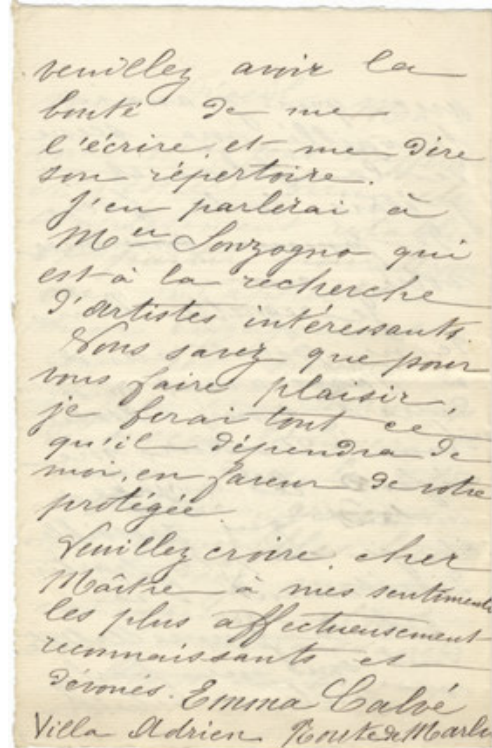 veuillez avoir la
bonté de me
l'écrire et me dire
son répertoire.
J'en parlerai à
Meur Sonzogno qui
est à la recherche
d'artistes intéressants
Vous savez que pour
vous faire plaisir,
je ferai tout ce
qu'il dépendra de
moi, en faveur de votre
protégée.
Veuillez croire, cher
Maître à mes sentiments
les plus affectueusement
reconnaissants et
dévoués. Emma Calvé
Villa Adrien Route de